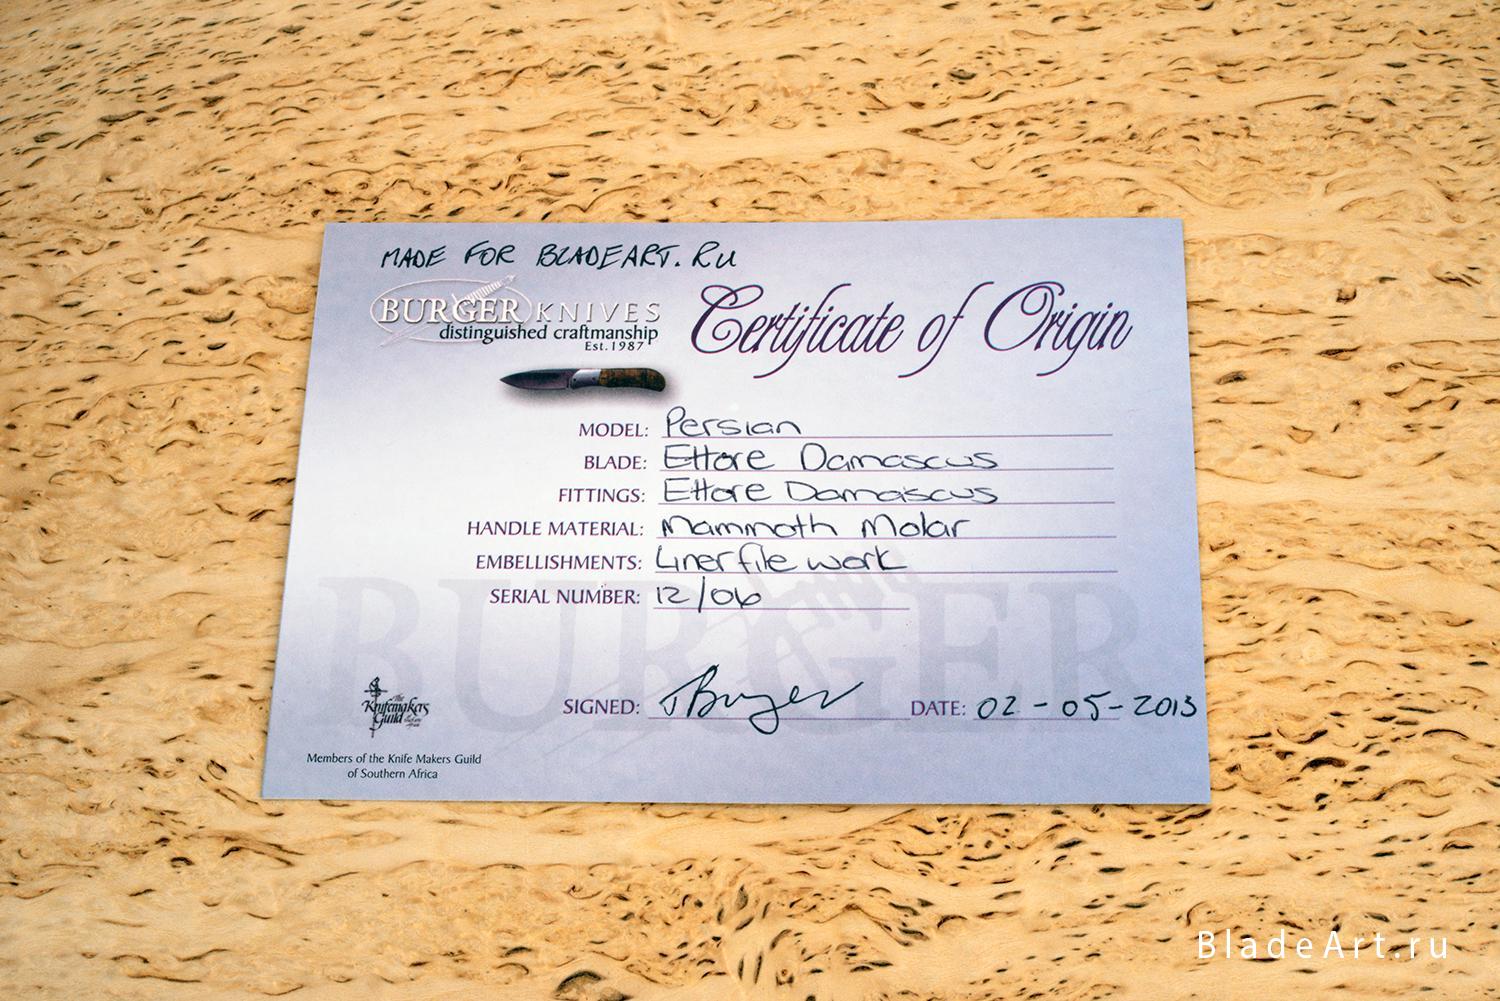 MADE FOR BLADEART.RU
BURGER KNIVES
distinguished craftmanship
Est.1987
Certificate of Origin
MODEL: Persian
BLADE: Ettore Damascus
FITTINGS: Ettore Damascus
HANDLE MATERIAL: Mammoth Molar
EMBELLISHMENTS: Liner file work
SERIAL NUMBER: 12/06
BURGER
The
Knifemakers
Guild
SIGNED: Burger DATE: 02-05-2013
Members of the Knife Makers Guild
of Southern Africa
BladeArt.ru